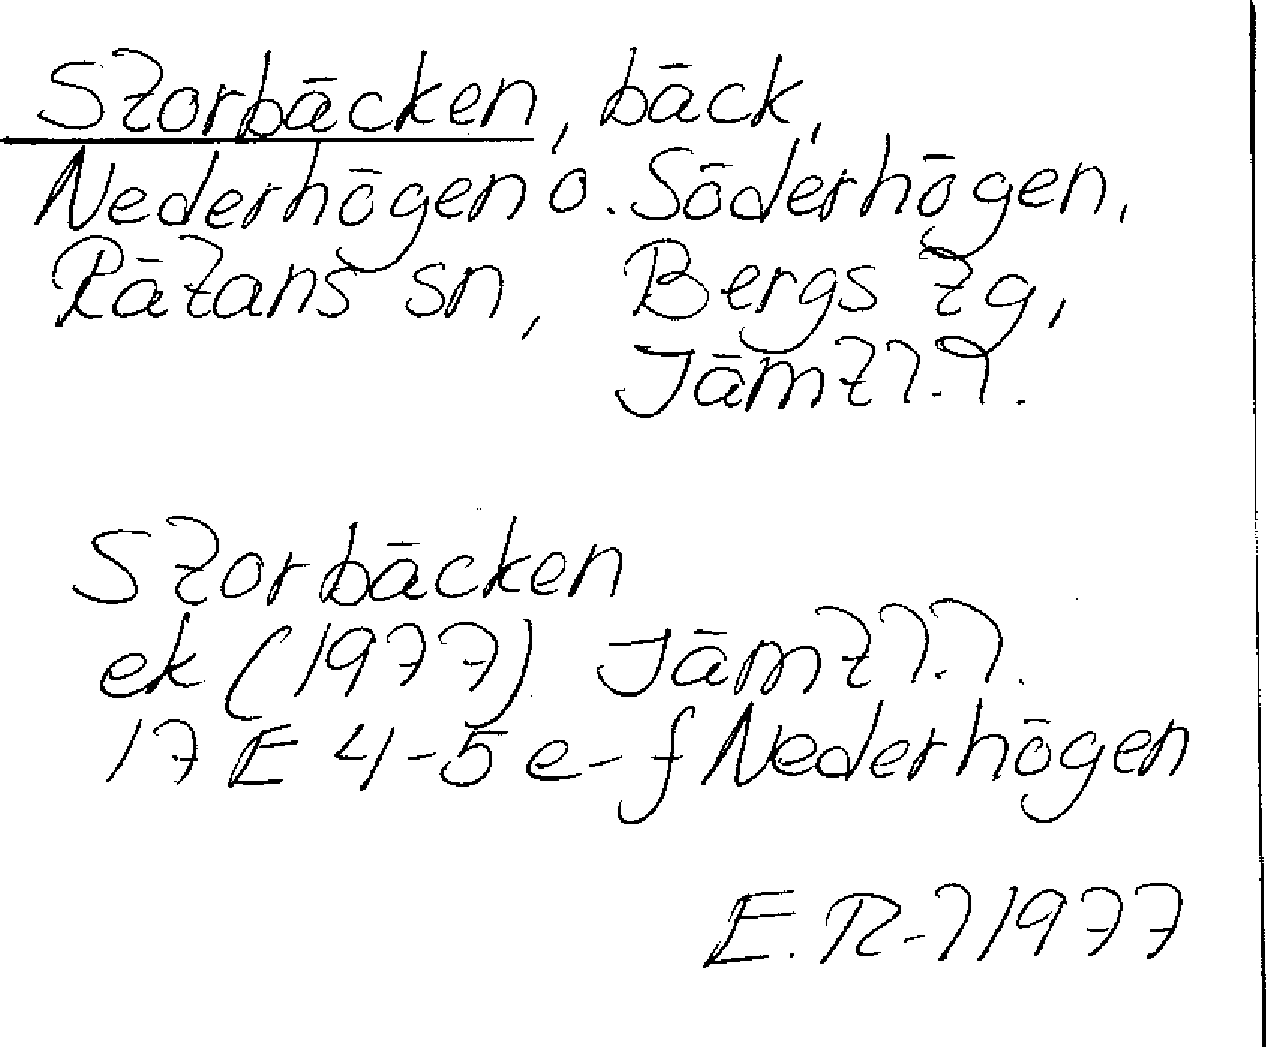 Storbäcken, bäck,
Nederhögen o. Söderhögen,
Rätans sn, Bergs tg,
Jämtl.l.
Storbäcken
ek (1977) Jämtl.l.
17 E 4-5 e-f Nederhögen
E. R-l 1977